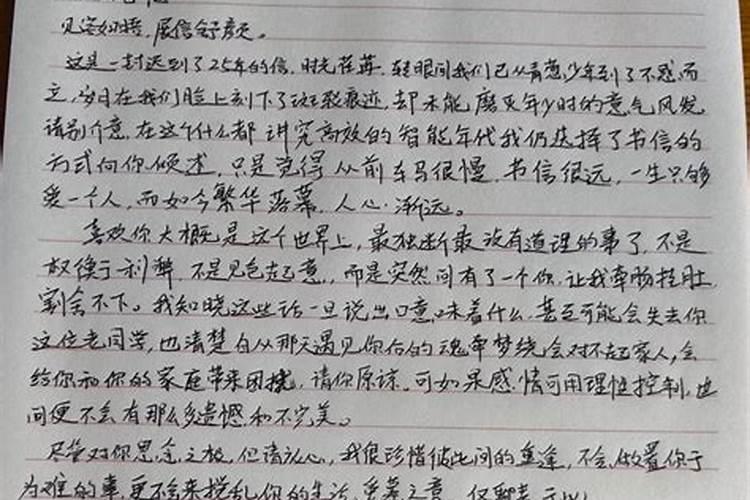 见字如晤，展信舒颜。
这是一封迟到了25年的信，时光荏苒，转眼间我们已从青葱少年到了不惑而
立，岁月在我们脸上刻下了斑驳痕迹，却未能磨灭年少时的意气风发
请别介意，在这个什么都讲究高效的智能年代我仍选择了书信的
方式向你倾述，只是觉得从前车马很慢，书信很远，一生只够
爱一个人，而如今繁华落幕，人心渐远。
喜欢你大概是这个世界上，最独断最没有道理的事了，不是
权衡于利弊，不是见色起意，而是突然间有了一个你，让我牵肠挂肚
割舍不下。我知晓这些话一旦说出口意味着什么，甚至可能会失去你
这位老同学，也清楚自从那天遇见你后的魂牵梦绕会对不起家人，会
给你和你的家庭带来困扰，请你原谅，可如果感情可用理性控制，世
间便不会有那么多遗憾和不完美。
尽管对你思念之极，但请放心，我很珍惜彼此间的重逢，不会做置你于
为难的事，更不会来搅乱你的生活，爱慕之意，仅